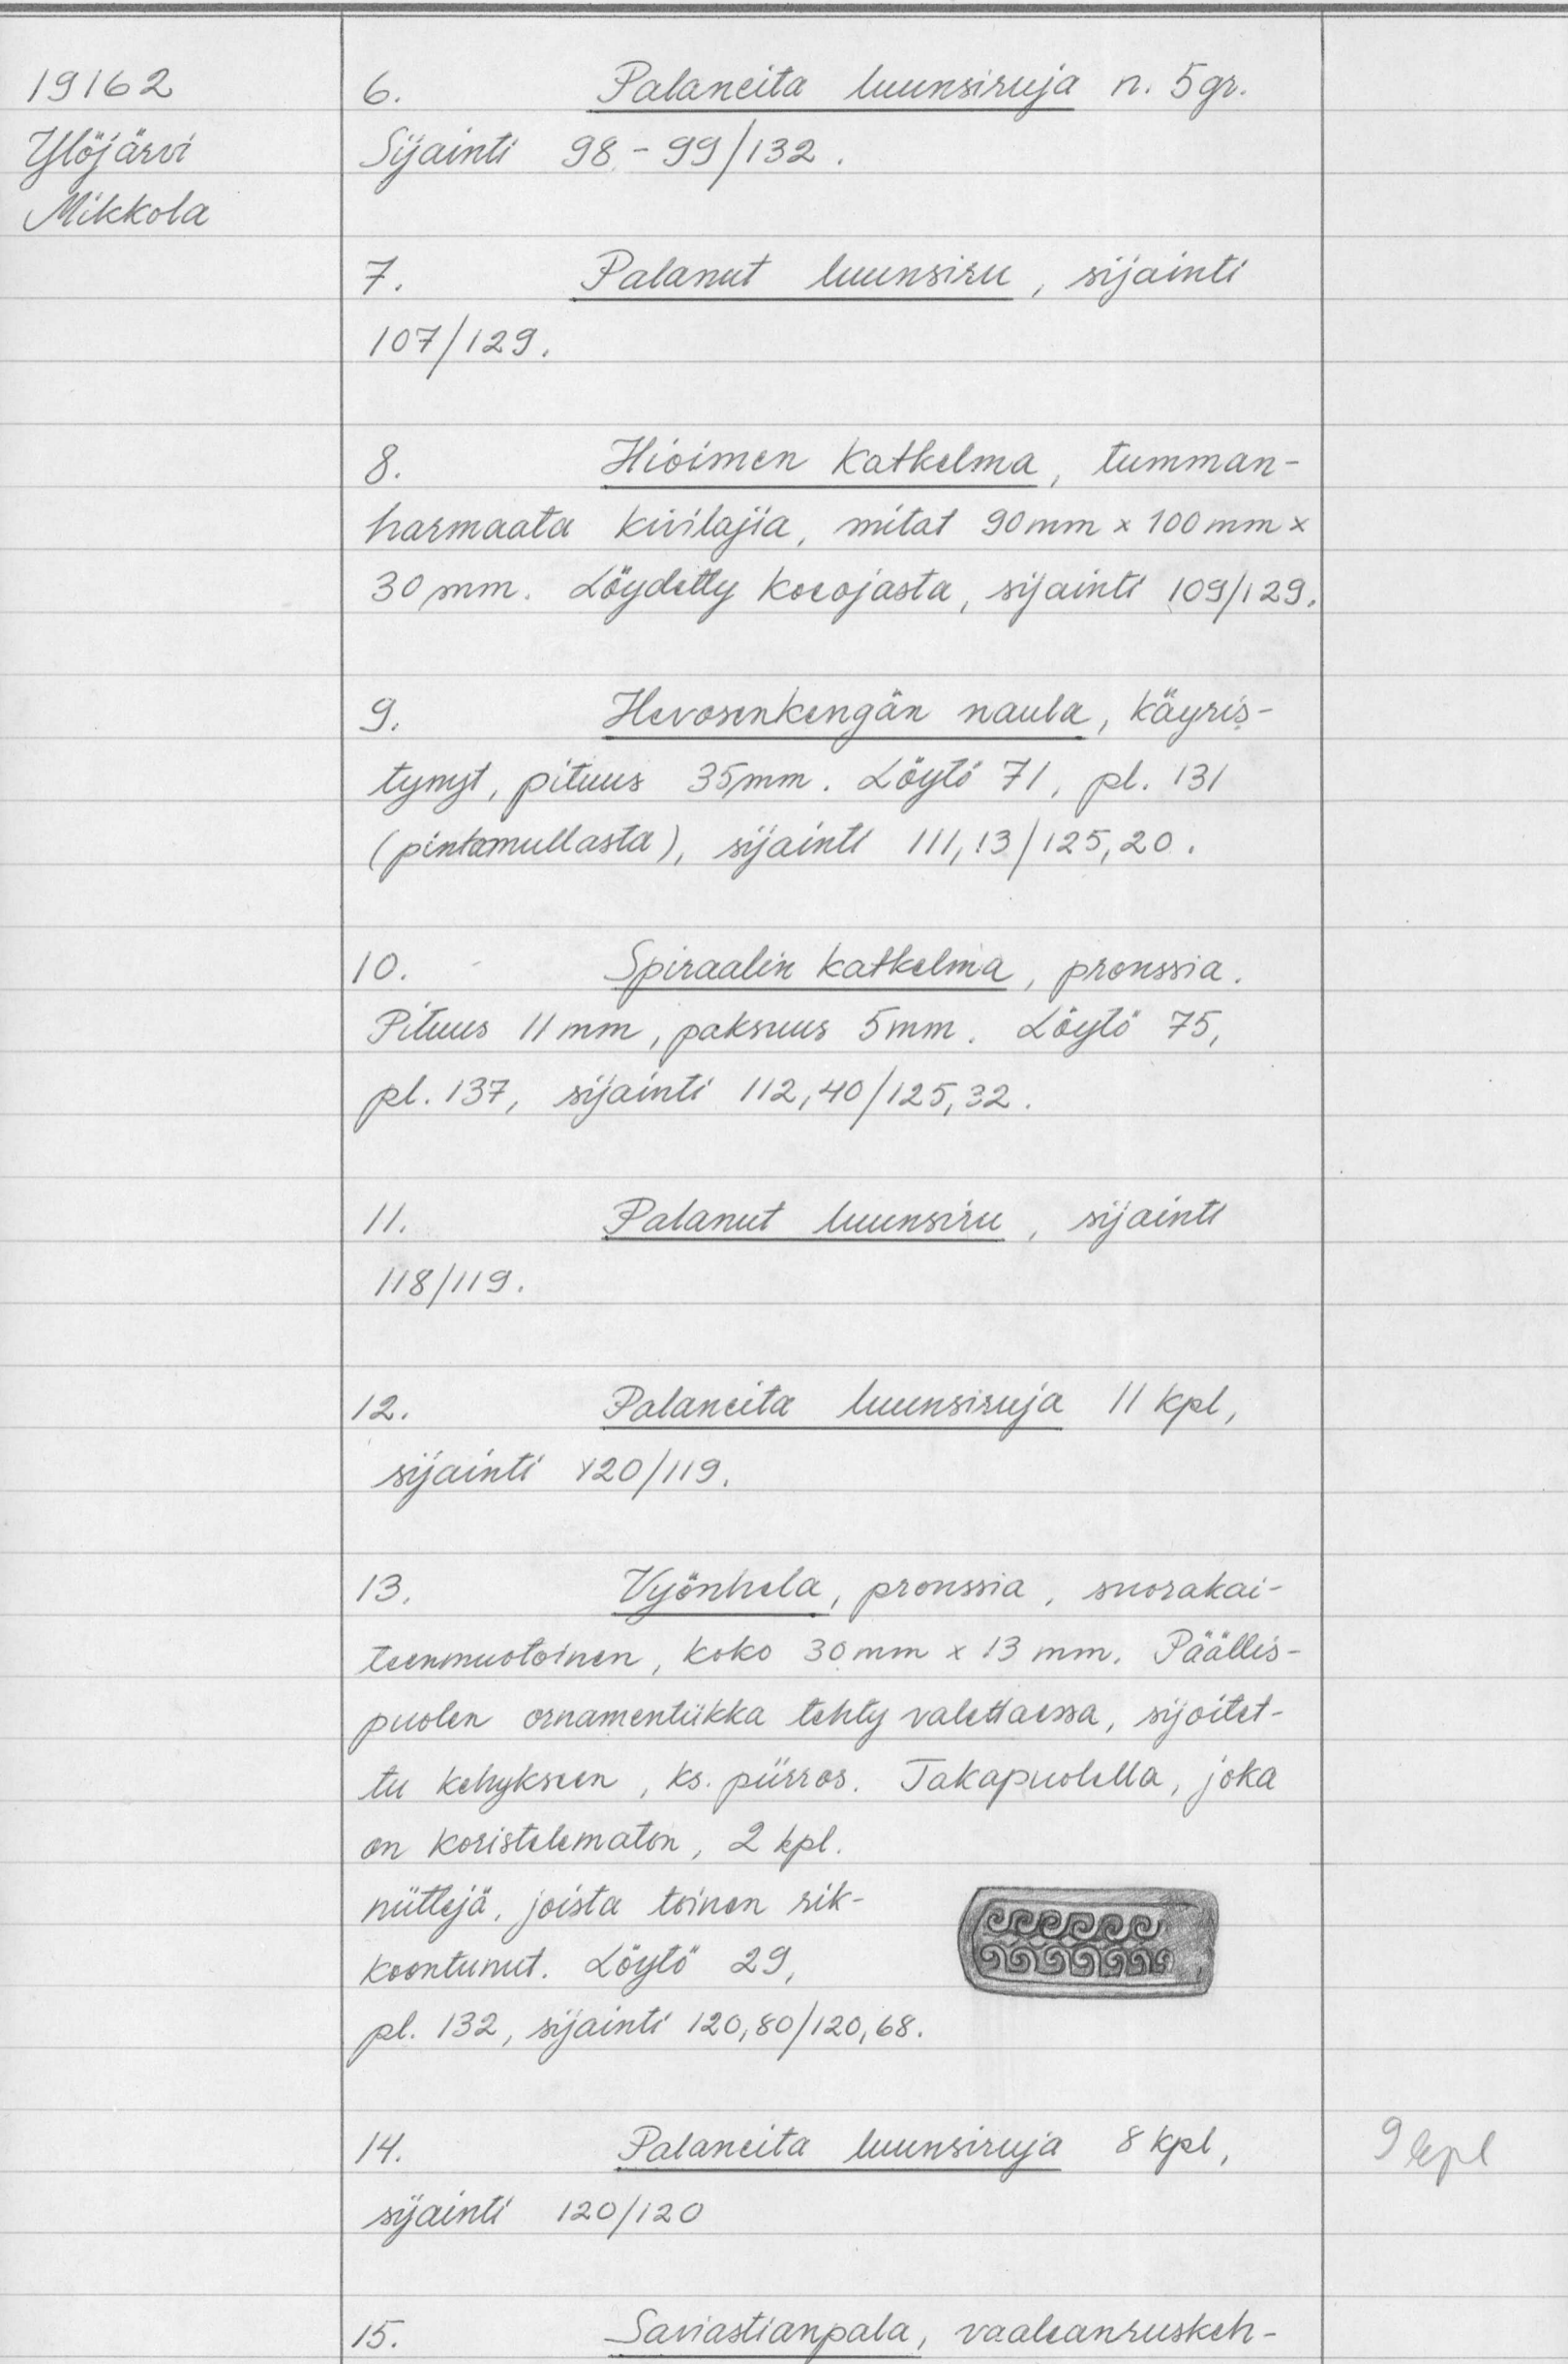 19162
Ylöjärvi
Mikkola
6. Palaneita luunsiruja n. 5gr.
Sijainti 98-99/132.
7. Palanut luunsiru, sijainti
107/129.
8. Hioimen katkelma, tumman-
harmaata kivilajia, mitat 90mm x 100mm x
30mm. Löydetty koeojasta, sijainti 109/129.
9. Hevosenkengän naula, käyris-
tynyt, pituus 35mm. Löytö 71, pl. 131
(pintamullasta), sijainti 111,13/125,20.
10. Spiraalin katkelma, pronssia.
Pituus 11mm, paksuus 5mm. Löytö 75,
pl. 137, sijainti 112,40/125,32.
11. Palanut luunsiru, sijainti
118/119.
12. Palaneita luunsiruja 11 kpl,
sijainti 120/119.
13. Vyönhela, pronssia, suorakai-
teenmuotoinen, koko 30mm x 13mm. Päällis-
puolen ornamentiikka tehty valettaessa, sijoitet-
tu kehykseen, ks. piirros. Takapuolella, joka
on koristelematon, 2 kpl.
niittejä, joista toinen rik-
koontunut. Löytö 29,
pl. 132, sijainti 120,80/120,68.
14. Palaneita luunsiruja 8 kpl,
9 kpl
sijainti 120/120
15. Saviastianpala, vaaleanruskeh-